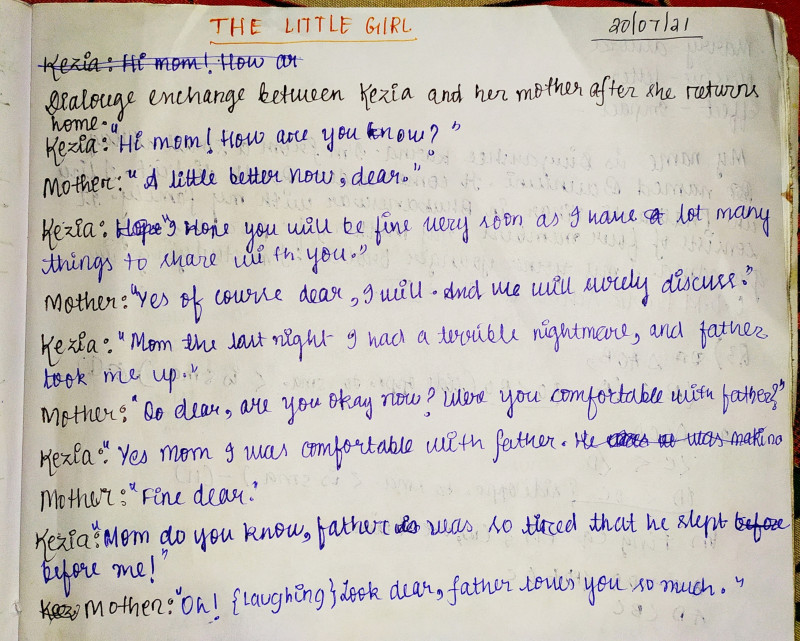 THE LITTLE GIRL
20/07/21
Kezia: Hi mom! How ar
Dialouge enchange between Kezia and her mother after she returns
home.
Kezia: "Hi mom! How are you know?"
Mother: "A little better now, dear."
Kezia: Hope "I Hope you will be fine very soon as I have a lot many
things to share with you."
Mother: "Yes of course dear, I will. And we will surely discuss."
Kezia: "Mom the last night I had a terrible nightmare, and father
took me up."
Mother: "Oo dear, are you okay now? Were you comfortable with father?"
Kezia: "Yes Mom I was comfortable with father. He was making
Mother: "Fine dear."
Kezia: "Mom do you know, father is was so tired that he slept before
before me!"
Kez Mother: "Oh! {Laughing} Look dear, father loves you so much."